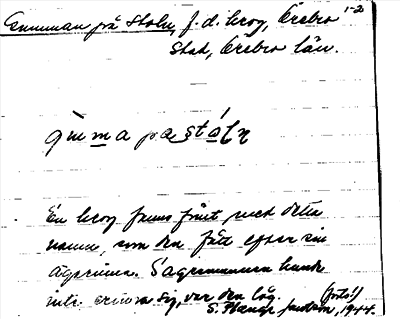 Gumman på Stolen, f.d. krog, Örebro 1-2
stad, Örebro län.
gùm̱a pa stóln
En krog fanns förut med detta
namn, som den fått efter sin
ägarinna. Sagesmannen kunde
inte erinra sig, var den låg. (forts!)
S. 1944.